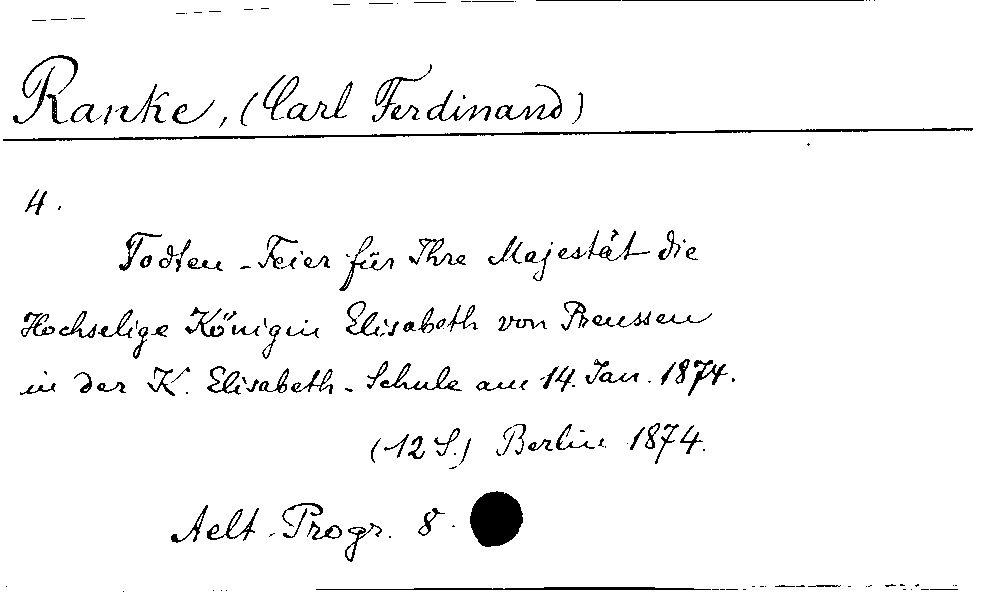 Ranke, (Carl Ferdinand)
4.
Todten-Feier für Ihre Majestät die
Hochselige Königin Elisabeth von Preussen
in der K. Elisabeth-Schule am 14. Jan. 1874.
(12 S.) Berlin 1874.
Aelt. Progr. 8.